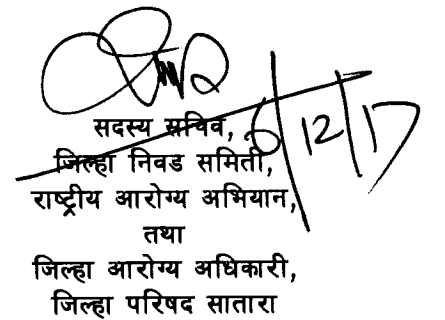 6/12/17
सदस्य सचिव,
जिल्हा निवड समिती,
राष्ट्रीय आरोग्य अभियान,
तथा
जिल्हा आरोग्य अधिकारी,
जिल्हा परिषद सातारा